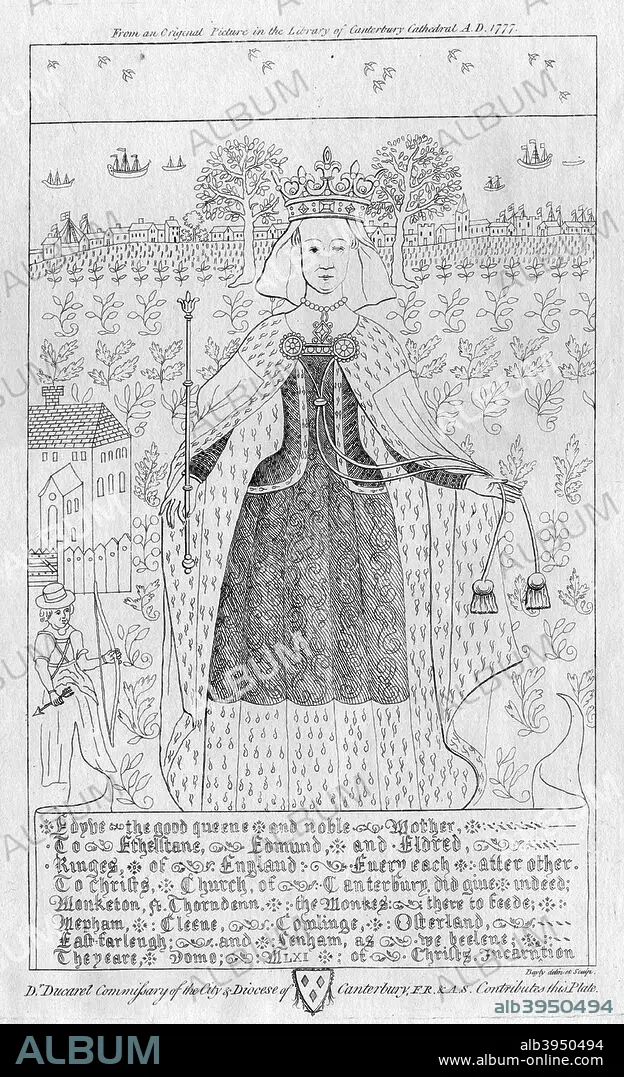 From an Original Picture in the Library of Canterbury Cathedral A.D. 1777.
Edyve the good queene and noble Mother,
To Ethelstane, Edmund, and Eldred,
Kinges, of England: Euery each after other.
To christs, Church, of Canterbury, did giue indeed;
Monketon, & Thorndenn, the Monkes there to feede;
Mepham, Cleene, Cowlinge, Osterland,
East farleugh; and Lenham, as we beleeue;
The yeare, Domo; MLXI of Christs Incarntion
Bayly delin et Sculp.
Dr. Ducarel Commissary of the City & Diocese of Canterbury, F.R. & A.S. Contributes this Plate.
alb3950494
ALBUM
alb3950494
www.album-online.com